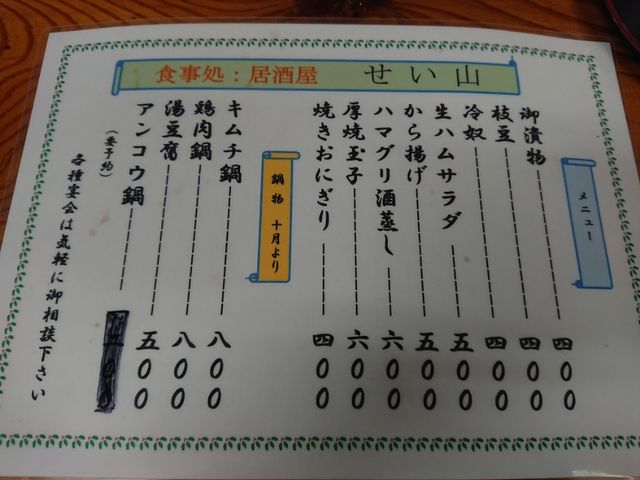 食事処：居酒屋 せい山
メニュー
御漬物 四00
枝豆 四00
冷奴 四00
生ハムサラダ 五00
から揚げ 五00
ハマグリ酒蒸し 六00
厚焼玉子 六00
焼きおにぎり 四00
鍋物 十月より
キムチ鍋 八00
鶏肉鍋 八00
湯豆腐 五00
アンコウ鍋
（要予約）
各種宴会は気軽に御相談下さい